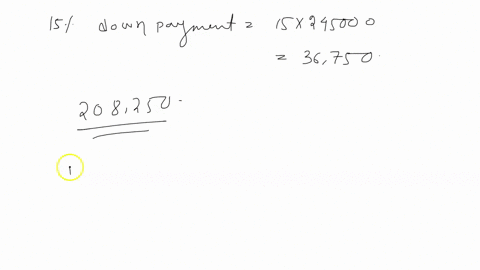 15% down payment = 15 x 245000
= 36,750.
208,250.